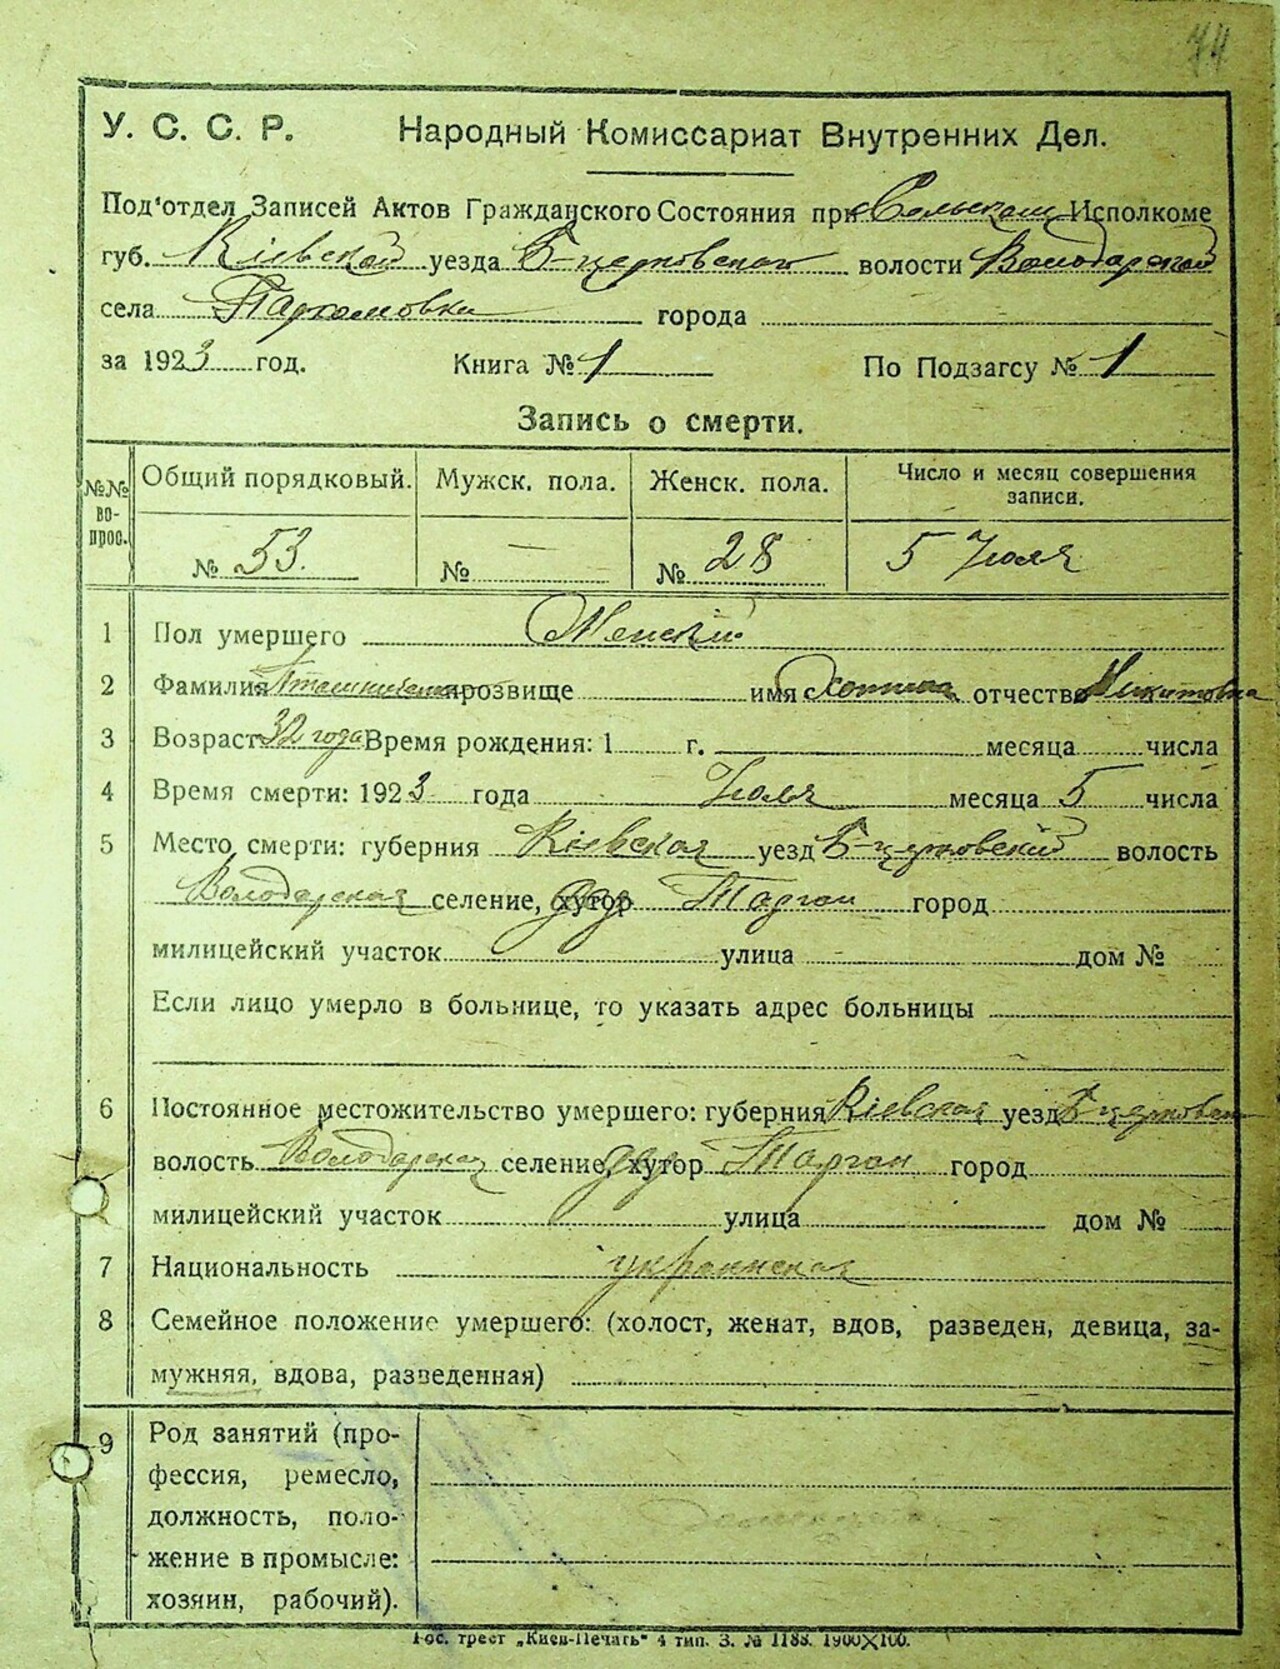 74
У. С. С. Р. Народный Комиссариат Внутренних Дел.
Под'отдел Записей Актов Гражданского Состояния при Сельском Исполкоме
губ. Кіевской уезда Б-церковского волости Володарской
села Пархомовки города
за 1923 год. Книга № 1 По Подзагсу № 1
Запись о смерти.
№№ вопрос. Общий порядковый. Мужск. пола. Женск. пола. Число и месяц совершения записи.
№ 53. № — № 28 5 Июля
1 Пол умершего Женскій
2 Фамилия прозвище имя отчество Никитовна
3 Возраст 32 года Время рождения: 1 г. месяца числа
4 Время смерти: 1923 года Июля месяца 5 числа
5 Место смерти: губерния Кіевская уезд Б-церковский волость
Володарская селение, хутор дер Тарган город
милицейский участок улица дом №
Если лицо умерло в больнице, то указать адрес больницы
6 Постоянное местожительство умершего: губерния Кіевская уезд Б церковск
волость Володарская селение, хутор дер Тарган город
милицейский участок улица дом №
7 Национальность украинская
8 Семейное положение умершего: (холост, женат, вдов, разведен, девица, за-
мужняя, вдова, разведенная)
9 Род занятий (про-
фессия, ремесло,
должность, поло-
жение в промысле:
хозяин, рабочий).
Гос. трест „Киев-Печать" 4 тип. З. № 1188. 1900×100.